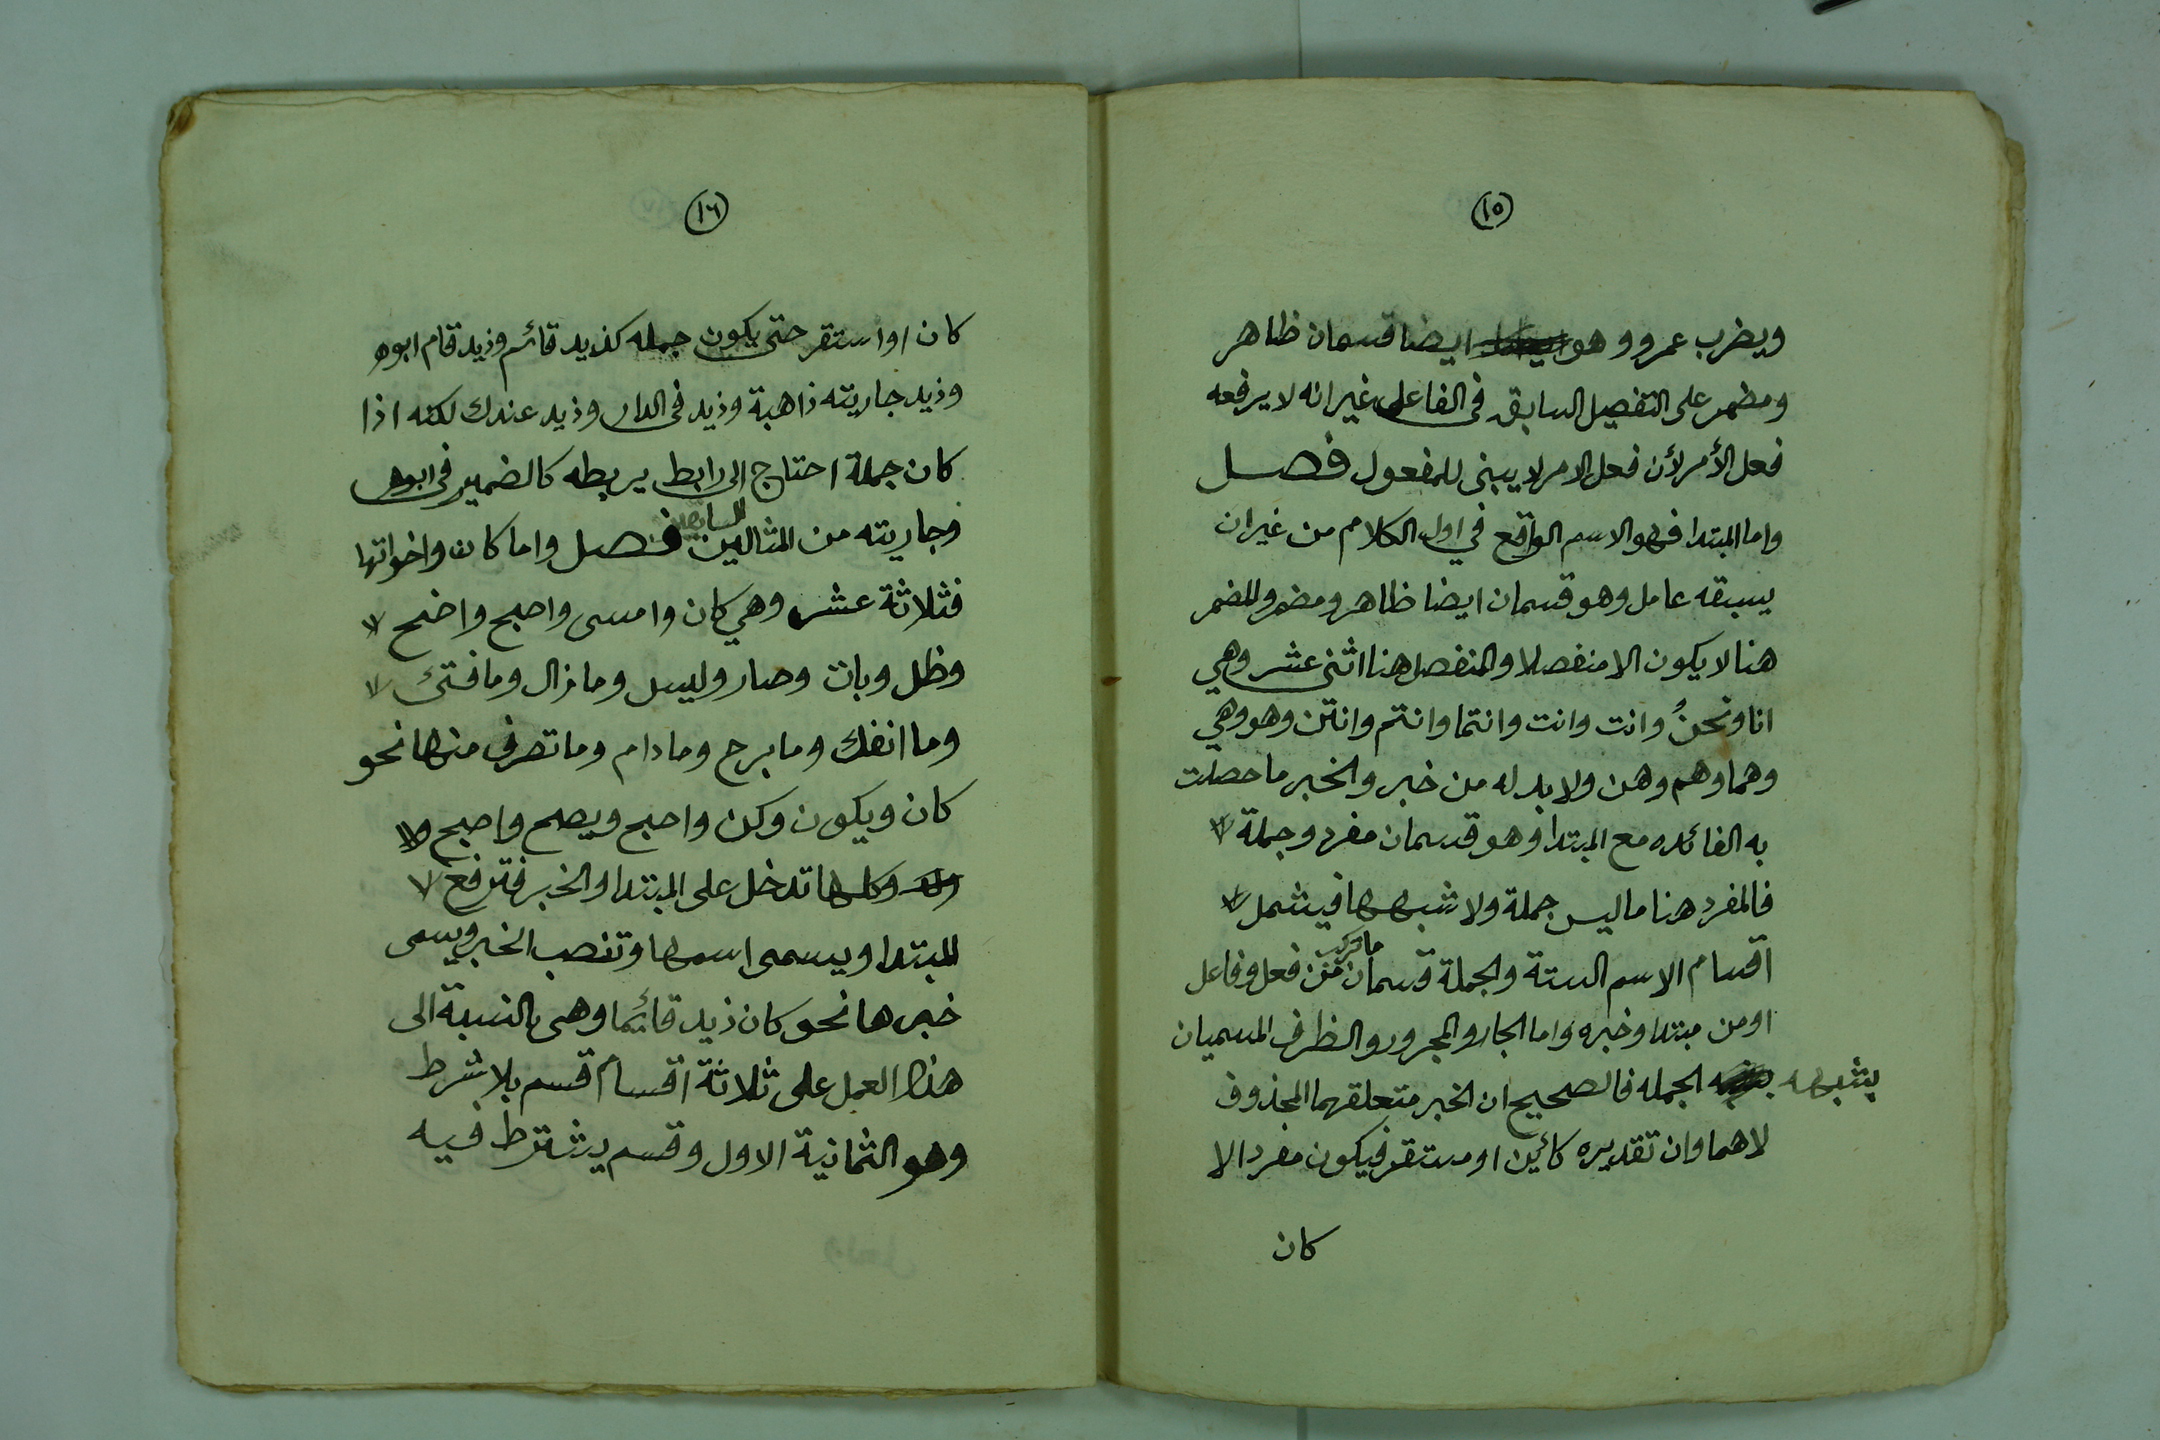 ١٥
ويضرب عمرو وهو ايضا قسمان ظاهر
ومضمر على التفصيل السابق في الفاعل غير انه لا يرفعه
فعل الأمر لأن فعل الامر لا يبنى للمفعول فصل
واما المبتدا فهو الاسم الواقع في اول الكلام من غير ان
يسبقه عامل وهو قسمان ايضا ظاهر ومضمر والمضمر
هنا لا يكون الا منفصلا والمنفصل هنا اثنى عشر وهي
انا ونحنُ وانت وانت وانتما وانتم وانتن وهو وهي
وهما وهم وهن ولا بد له من خبر والخبر ما حصلت
به الفائده مع المبتدا وهو قسمان مفرد وجملة
فالمفرد هنا ما ليس جملة ولا شبهها فيشمل
اقسام الاسم الستة والجملة قسمان ما تركب من فعل وفاعل
او من مبتدا وخبره واما الجار والمجرور والظرف المسميان
بشبه الجمله فالصحيح ان الخبر متعلقهما المحذوف
لا هما وان تقديره كائن او مستقر فيكون مفردا لا
كان
١٦
كان او استقر حتى يكون جمله كزيد قائم وزيد قام ابوه
وزيد جاريته ذاهبة وزيد في الدار وزيد عندك لكنه اذا
كان جملة احتاج الى رابط يربطه كالضمير في ابوه
وجاريته من المثالين السابقين فصل واما كان واخواتها
فثلاثة عشر وهي كان وامسى واصبح واضحى
وظل وبات وصار وليس وما زال وما فتئ
وما انفك وما برح وما دام وما تصرف منها نحو
كان ويكون وكن واصبح ويصبح واصبح
وكلها تدخل على المبتدا والخبر فترفع
المبتدا ويسمى اسمها وتنصب الخبر ويسمى
خبرها نحو كان زيد قائما وهى بالنسبة الى
هذا العمل على ثلاثة اقسام قسم بلا شرط
وهو الثمانية الاول وقسم يشترط فيه